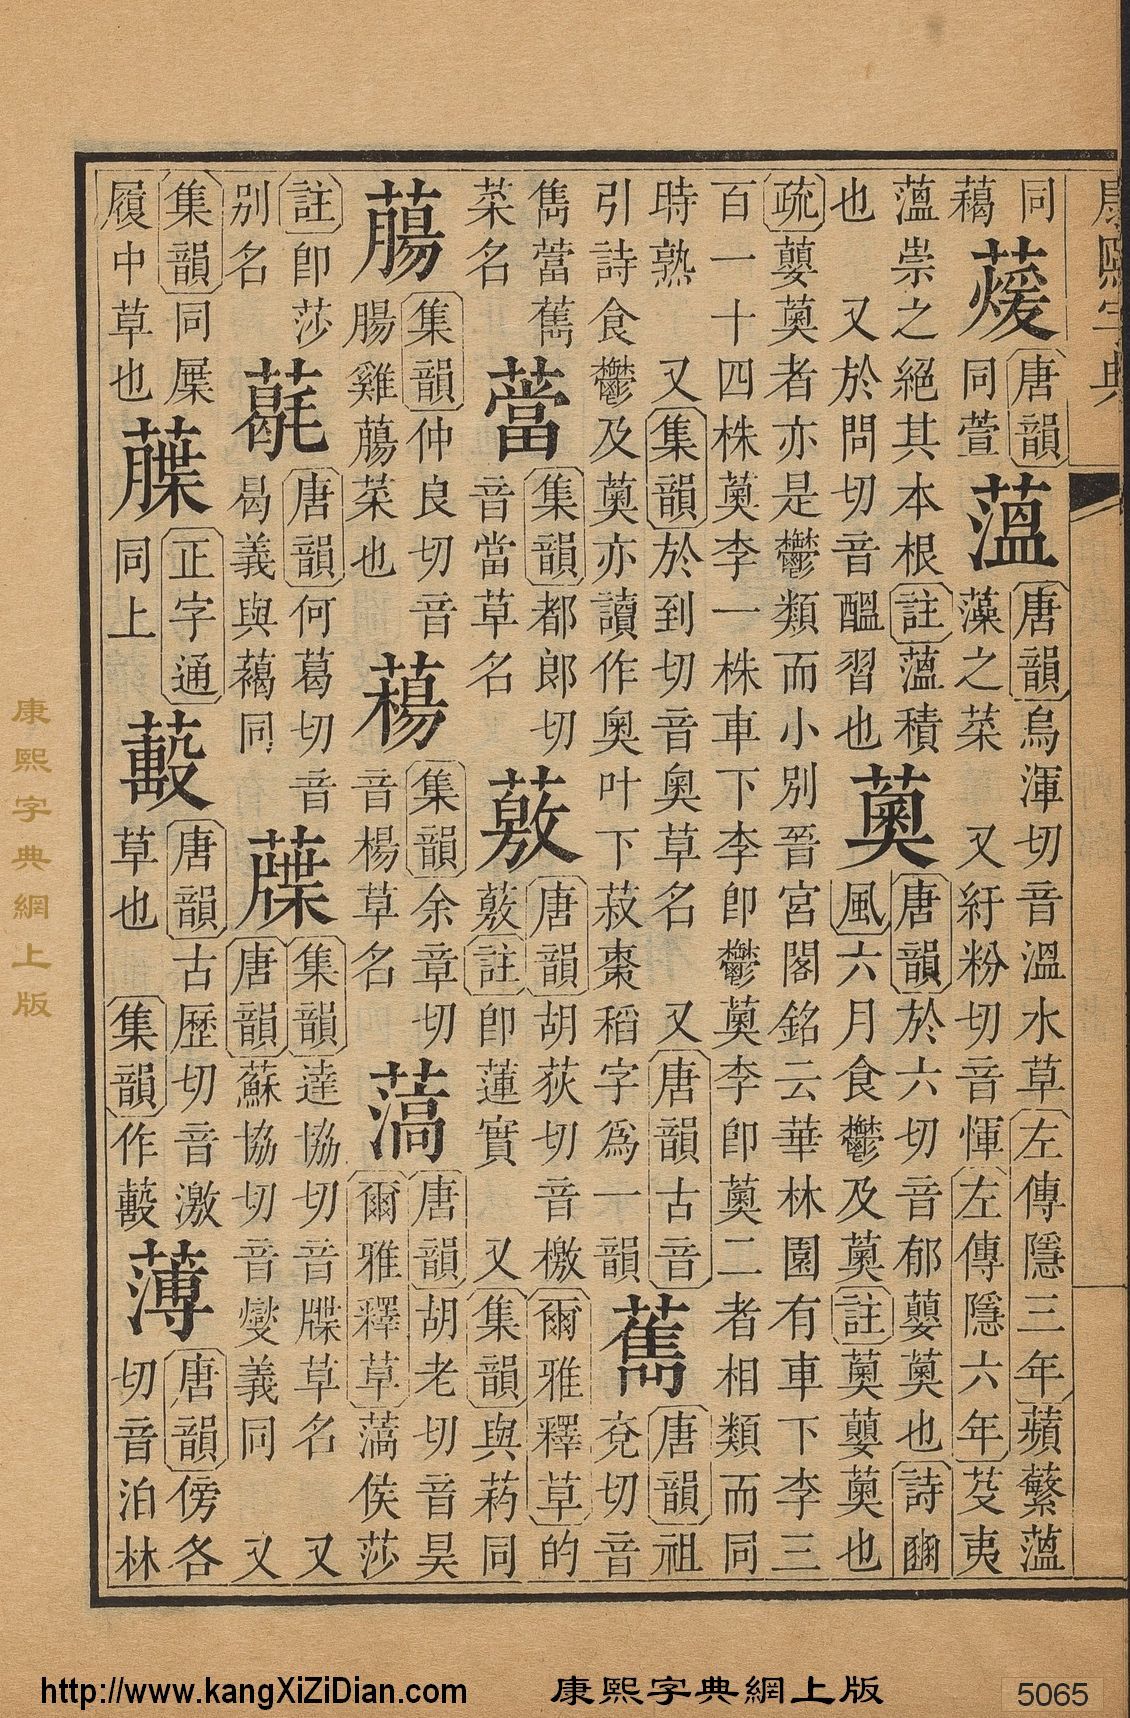 康熙字典
同
藒
蕿
唐韻
同萱
薀
唐韻烏渾切音溫水草左傳隱三年蘋蘩薀
藻之菜 又紆粉切音惲左傳隱六年芟夷
薀崇之絕其本根註薀積
也 又於問切音醞習也
薁
唐韻於六切音郁蘡薁也詩豳
風六月食鬱及薁註薁蘡薁也
疏蘡薁者亦是鬱類而小別晉宮閣銘云華林園有車下李三
百一十四株薁李一株車下李卽鬱薁李卽薁二者相類而同
時熟 又集韻於到切音奧草名 又唐韻古音
引詩食鬱及薁亦讀作奧叶下菽棗稻字爲一韻
唐韻祖
兗切音
雋䕞
菜名
集韻都郞切
音當草名
薂
唐韻胡荻切音檄爾雅釋草的
薂註卽蓮實 又集韻與葯同
集韻仲良切音
腸雞
菜也
集韻余章切
音楊草名
薃
唐韻胡老切音昊
爾雅釋草薃侯莎
註卽莎
別名
唐韻何葛切音
曷義與藒同
集韻達協切音牒草名 又
唐韻蘇協切音燮義同 又
集韻同屧
履中草也
正字通
同上
唐韻古歷切音激
草也 集韻作
薄
唐韻傍各
切音泊林
康熙字典網上版
http://www.kangXiZiDian.com 康熙字典網上版 5065